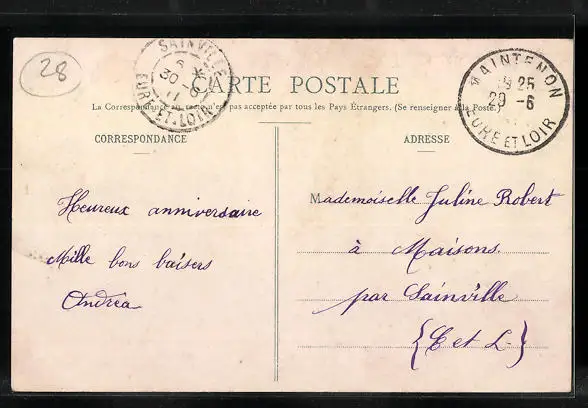 28
SAINVILLE
30 -6
11
EURE-ET-LOIR
CARTE POSTALE
MAINTENON
25
29 -6
EURE ET LOIR
La Correspondance au verso n'est pas acceptée par tous les Pays Étrangers. (Se renseigner à la Poste)
CORRESPONDANCE
ADRESSE
Heureux anniversaire
Mille bons baisers
Andréa
Mademoiselle Juline Robert
à Maisons
par Sainville
(E et L-)